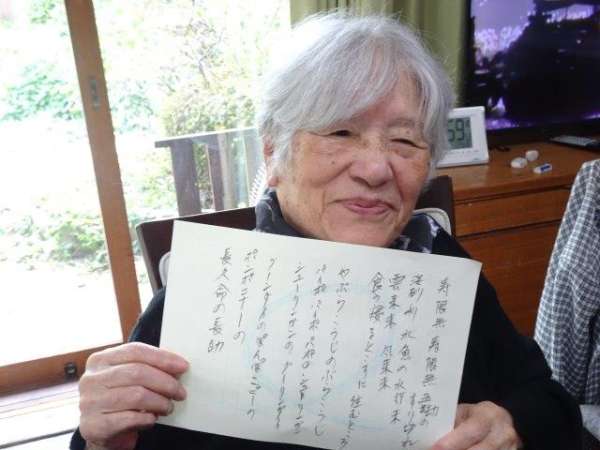 寿限無 寿限無 五劫の
すり切れ
海砂利 水魚の水行末
雲来末 風来末
食う寝るところに住むところ
やぶらこうじのぶらこうじ
パイポパイポ パイポのシューリンガン
シューリンガンのグーリンダイ
グーリンダイのポンポコピーの
ポンポコナーの
長久命の長助
59